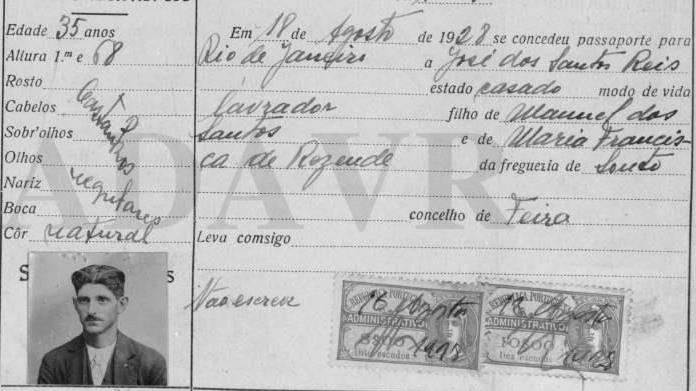 Edade 35 anos
Altura 1.m e 68
Rosto
Cabelos Castanhos
Sobr'olhos
Olhos
Nariz regulares
Boca
Côr natural
Em 18 de Agosto de 1928 se concedeu passaporte para
Rio de Janeiro a José dos Santos Reis
estado casado modo de vida
lavrador filho de Manuel dos
Santos e de Maria Francis-
ca de Rezende da freguezia de Souto
concelho de Feira
Leva comsigo
Não escreve
REPUBLICA PORTUGUESA
ADMINISTRATIVO
Agosto
REPUBLICA PORTUGUESA
ADMINISTRATIVO
Agosto
ADAVR